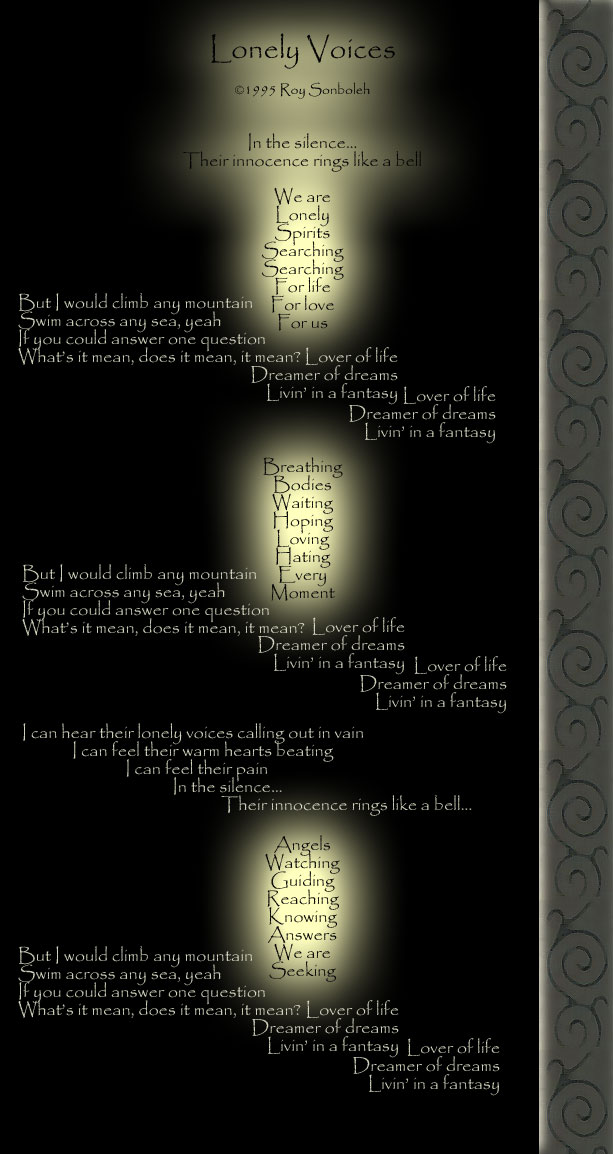 Lonely Voices
©1995 Roy Sonboleh
In the silence...
Their innocence rings like a bell
We are
Lonely
Spirits
Searching
Searching
For life
For love
For us
But I would climb any mountain
Swim across any sea, yeah
If you could answer one question
What's it mean, does it mean, it mean?
Lover of life
Dreamer of dreams
Livin' in a fantasy
Lover of life
Dreamer of dreams
Livin' in a fantasy
Breathing
Bodies
Waiting
Hoping
Loving
Hating
Every
Moment
But I would climb any mountain
Swim across any sea, yeah
If you could answer one question
What's it mean, does it mean, it mean?
Lover of life
Dreamer of dreams
Livin' in a fantasy
Lover of life
Dreamer of dreams
Livin' in a fantasy
I can hear their lonely voices calling out in vain
I can feel their warm hearts beating
I can feel their pain
In the silence...
Their innocence rings like a bell...
Angels
Watching
Guiding
Reaching
Knowing
Answers
We are
Seeking
But I would climb any mountain
Swim across any sea, yeah
If you could answer one question
What's it mean, does it mean, it mean?
Lover of life
Dreamer of dreams
Livin' in a fantasy
Lover of life
Dreamer of dreams
Livin' in a fantasy